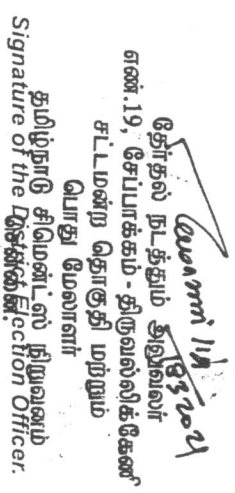 18/3/2021
தேர்தல் நடத்தும் அலுவலர்
எண்.19, சேப்பாக்கம் - திருவல்லிக்கேணி
சட்டமன்ற தொகுதி மற்றும்
பொது மேலாளர்
தமிழ்நாடு சிமெண்ட்ஸ் நிறுவனம்
சென்னை.
Signature of the District Election Officer.